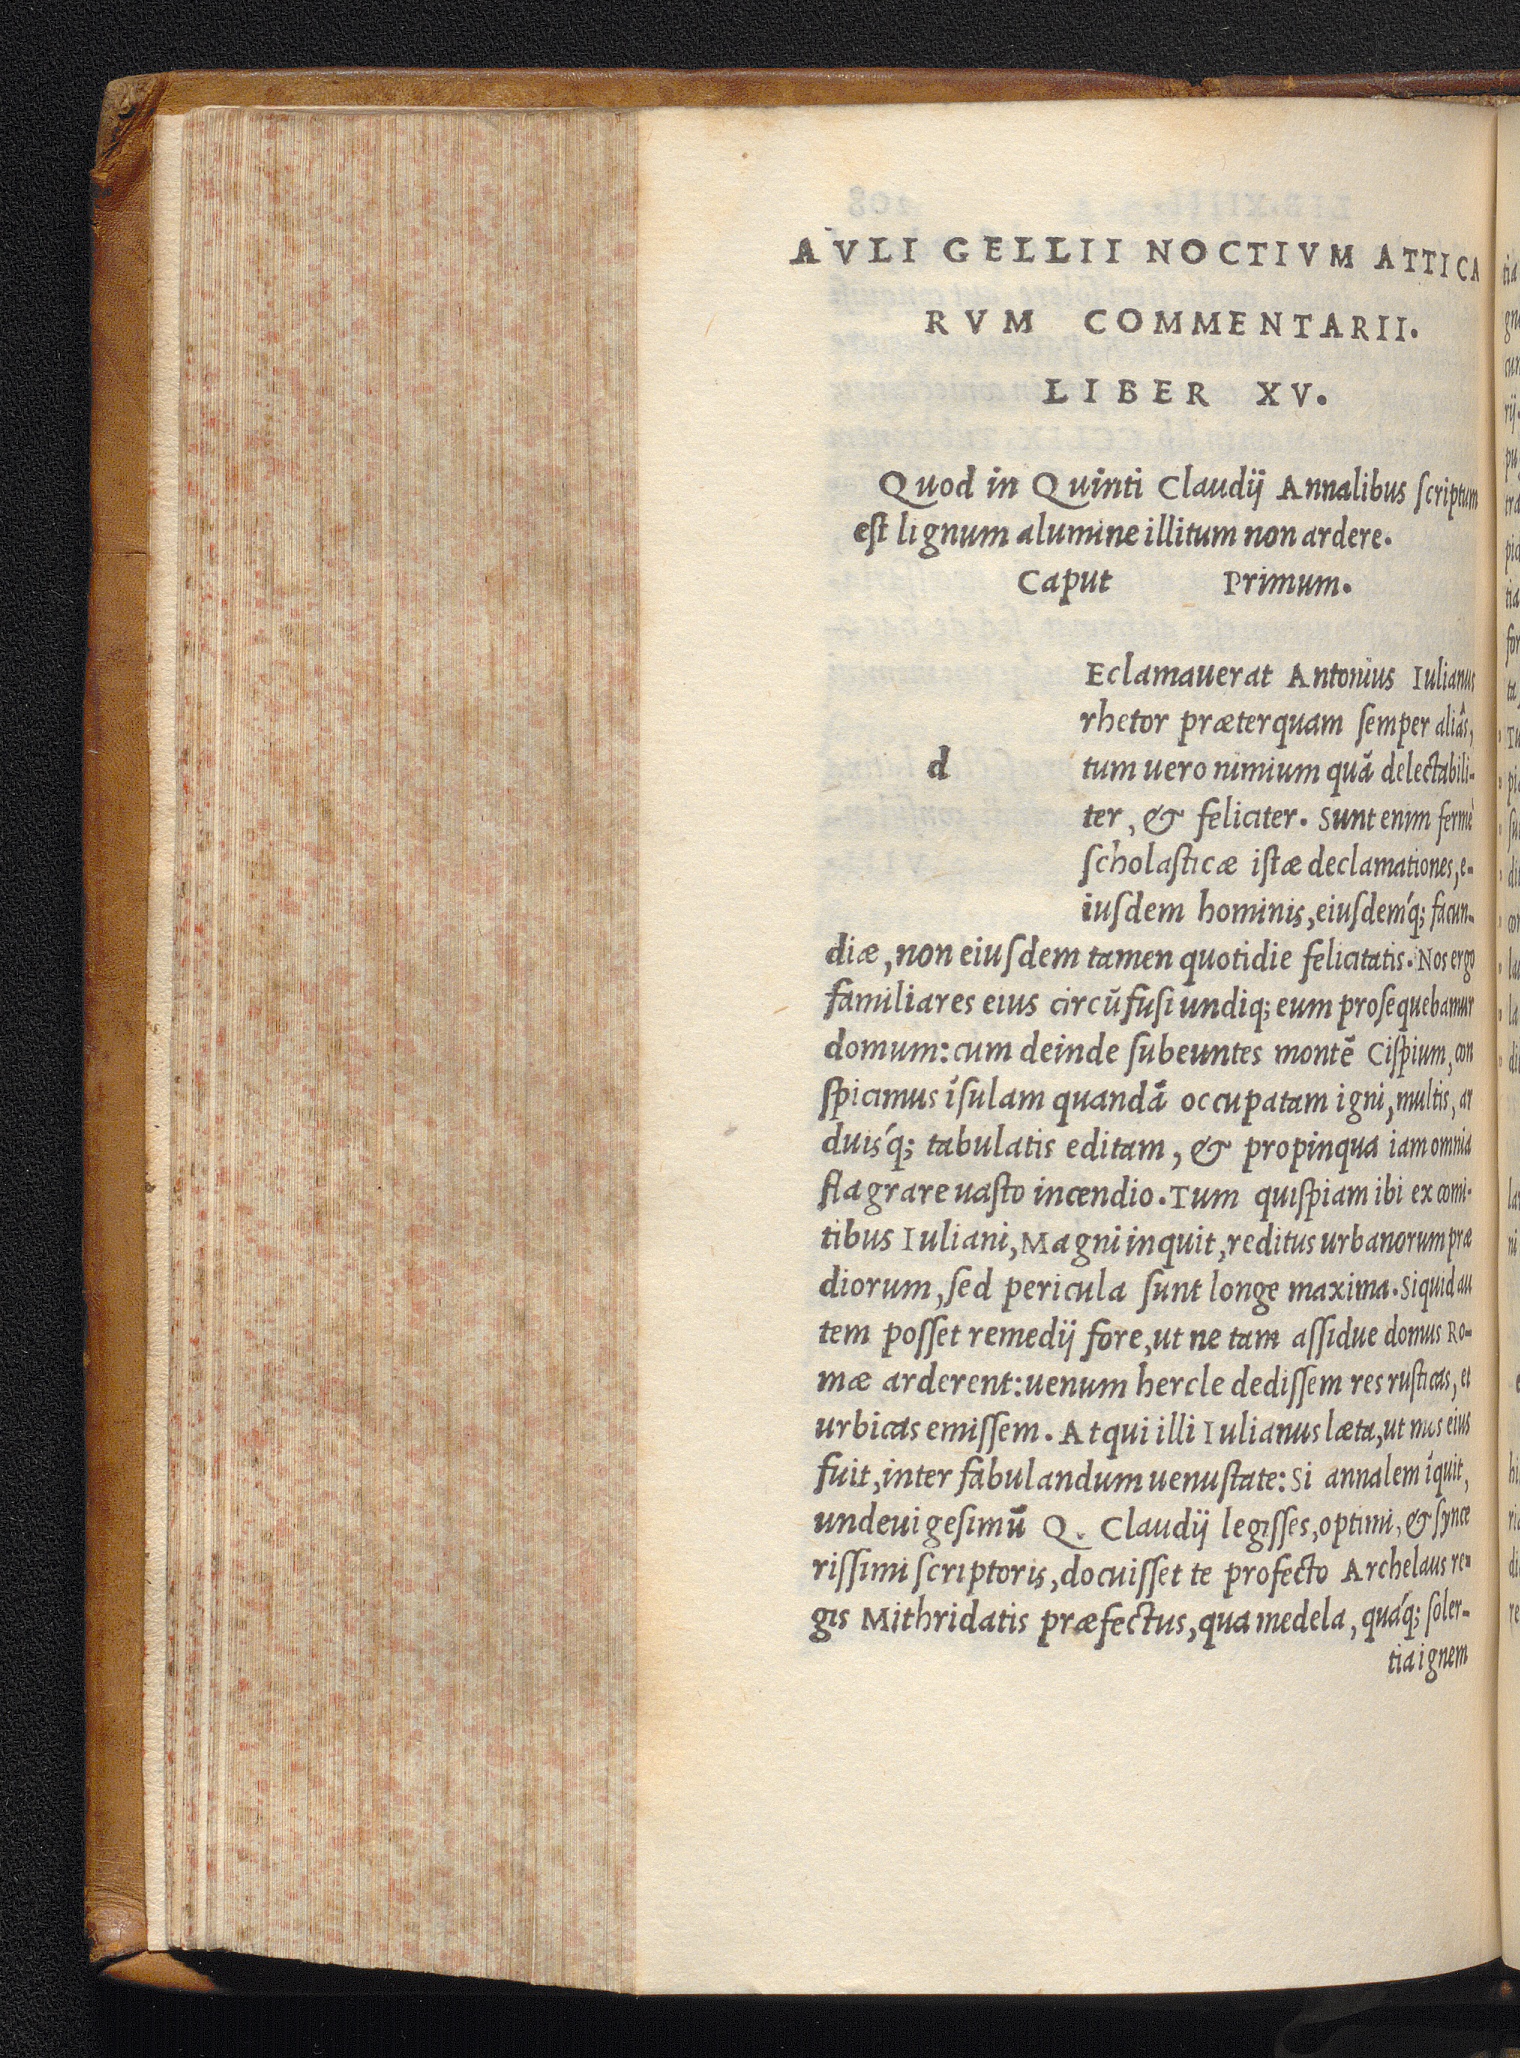 AVLI GELLII NOCTIVM ATTICA
RVM COMMENTARII.
LIBER XV.
Quod in Quinti Claudij Annalibus ſcriptum
eſt lignum alumine illitum non ardere.
Caput Primum.
d
Eclamauerat Antonius Iulianus
rhetor præterquam ſemper aliâs,
tum uero nimium quã delectabili-
ter, & feliciter. Sunt enim fermè
ſcholaſticæ iſtæ declamationes, e-
iuſdem hominis, eiuſdemq́; facun-
diæ, non eiuſdem tamen quotidie felicitatis. Nos ergo
familiares eius circũfuſi undiq; eum proſequebamur
domum: cum deinde ſubeuntes montẽ Ciſpium, con
ſpicimus ĩſulam quandã occupatam igni, multis, ar
duisq́; tabulatis editam, & propinqua iam omnia
flagrare uaſto incendio. Tum quiſpiam ibi ex comi-
tibus Iuliani, Magni inquit, reditus urbanorum præ
diorum, ſed pericula ſunt longe maxima. Siquid au
tem poſſet remedij fore, ut ne tam aſſidue domus Ro-
mæ arderent: uenum hercle dediſſem res ruſticas, et
urbicas emiſſem. Atqui illi Iulianus læta, ut mos eius
fuit, inter fabulandum uenuſtate: Si annalem ĩquit,
undeuigeſimũ Q. Claudij legiſſes, optimi, & ſynce
riſſimi ſcriptoris, docuiſſet te profecto Archelaus re-
gis Mithridatis præfectus, qua medela, quáq; ſoler-
tia ignem